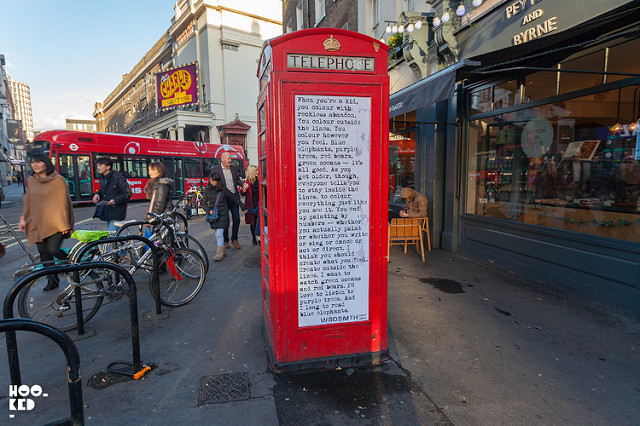 TELEPHONE
When you're a kid,
you colour with
reckless abandon.
You colour outside
the lines. You
colour however
you feel. Blue
elephants, purple
trees, red bears,
green oceans -- it's
all good. As you
get older, though,
everyone tells you
to stay inside the
lines, to colour
everything just like
everyone else. You end
up painting by
numbers -- whether
you actually paint
or whether you write
or sing or dance or
act or direct. I
think you should
create what you feel.
Create outside the
lines. I want to
watch green oceans
and red bears. I'd
love to listen to
purple trees. And
I long to read
blue elephants.
WRDSMTH
PEYTON
AND
BYRNE
BAKERY
HOO
KED